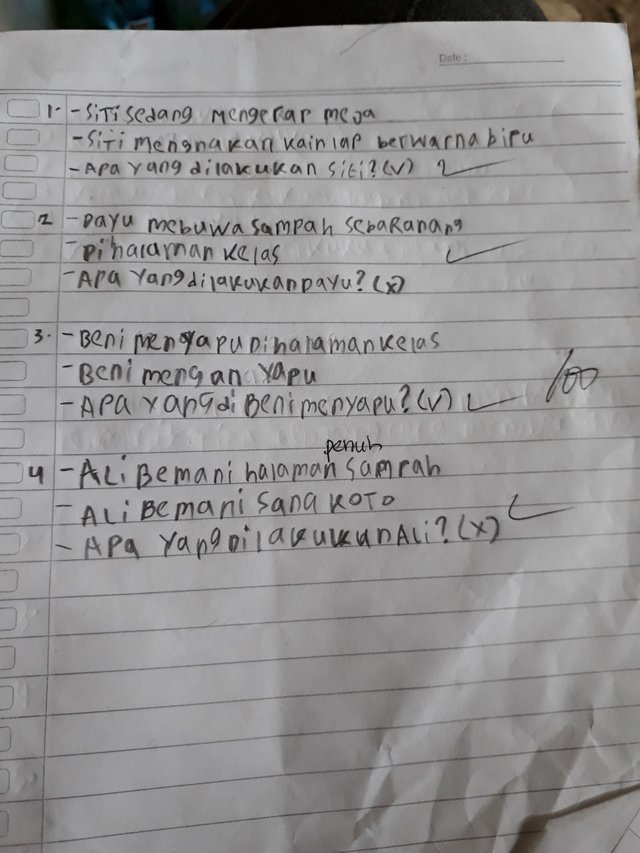 Date :
1. - SiTi sedang mengerap meja
- SiTi mengnakan kain lap berwarna biru
- Apa yang dilakukan siti? (v)
2 - Dayu mebuwa sampah sebaRanang
- Di halaman kelas
- Apa yang dilakukan Dayu? (x)
3. - Beni menyapu Di halaman kelas
- Beni mengan yapu
- APA Yang di Beni menyapu? (v)
100
penuh
4 - ALi Bemani halaman samrah
- ALi Bemani sana KOTO
- APa Yang Dilakukan ALi? (x)